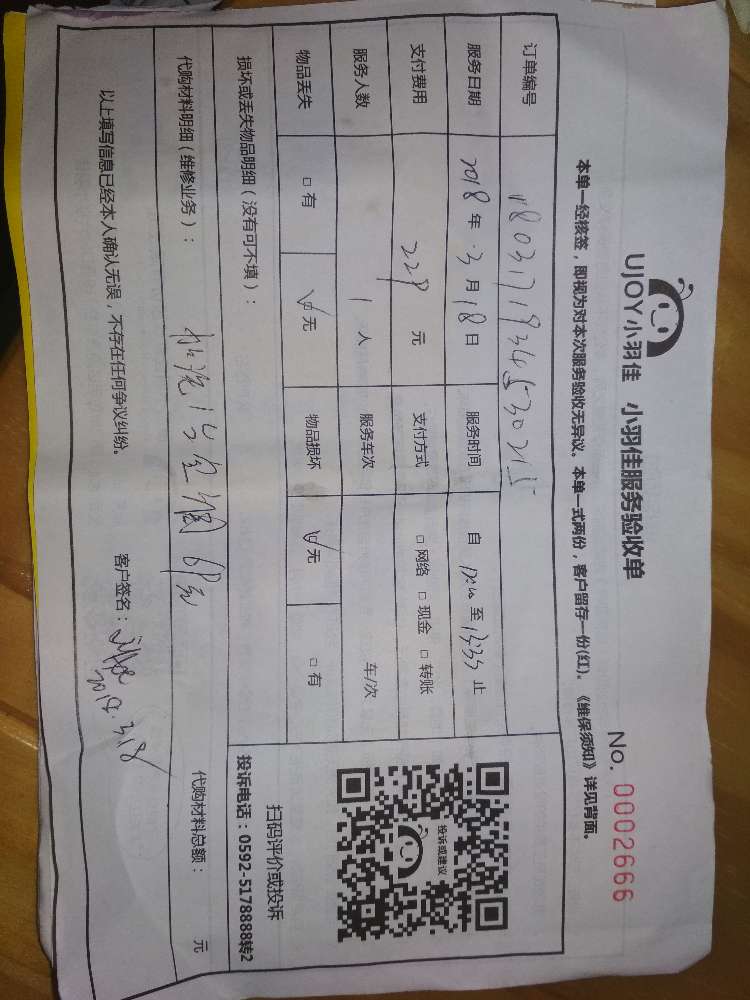 UJOY小羽佳 小羽佳服务验收单
No. 0002666
本单一经核签，即视为对本次服务验收无异议。本单一式两份，客户留存一份(红)。《维保须知》详见背面。
订单编号 1803171934530215
服务日期 2018 年 3 月 18 日 服务时间 自 至 13:35 止
支付费用 229 元 支付方式 □ 网络 □ 现金 □ 转账
服务人数 1 人 服务车次 车/次
物品丢失 □ 有 ☑ 无 物品损坏 ☑ 无 □ 有
损坏或丢失物品明细（没有可不填）：
投诉或建议
扫码评价或投诉
投诉电话：0592-5178888转2
代购材料明细（维修业务）：
代购材料总额： 元
以上填写信息已经本人确认无误，不存在任何争议纠纷。
客户签名：
2018.3.18